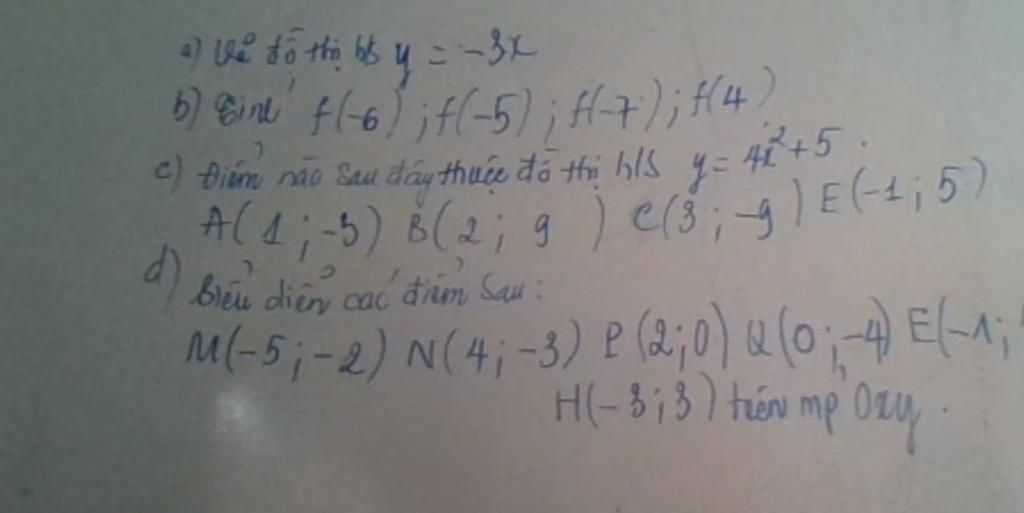 a) Vẽ đồ thị h/s y = -3x
b) Tính f(-6) ; f(-5) ; f(-7) ; f(4)
c) Điểm nào sau đây thuộc đồ thị h/s y = 4x² + 5 .
A(1 ; -3) B(2 ; 9 ) C(3 ; -9) E(-1 ; 5)
d) Biểu diễn các điểm sau :
M(-5 ; -2) N(4 ; -3) P(2 ; 0) Q(0 ; -4) E(-1 ;
H(-3 ; 3) trên mp Oxy .